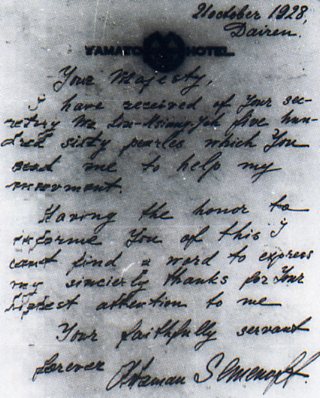 21 october 1928,
Dairen.
YAMATO HOTEL.
Your Majesty,
I have received of Your sec-
retary Mr. five hun-
dred sixty pearles which You
send me to help my
movment.
Having the honor to
informe You of this I
cant find a word to express
my sincierly thanks for Your
highest attention to me
Your faithfully servant
forever Ataman Semenoff.